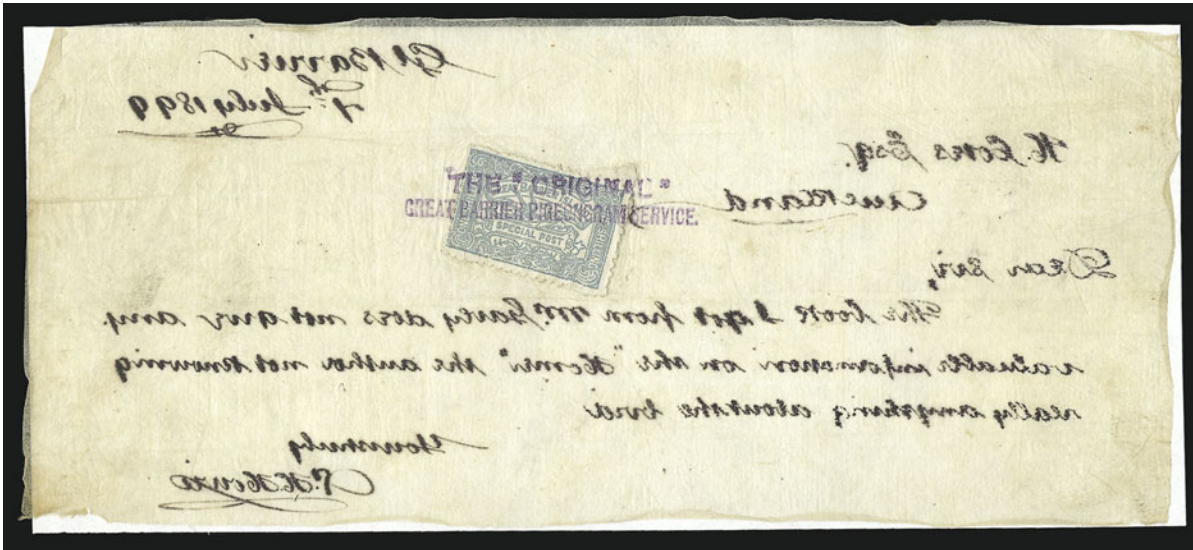 Gt Barrier
7th July 1899
H. Cores Esq.
Auckland
THE "ORIGINAL"
GREAT BARRIER PIGEONGRAM SERVICE.
SPECIAL POST
Dear Sir,
The book I got from Mr. does not give any
valuable information on the "Homer" the author not knowing
really anything about the bird
Yours truly